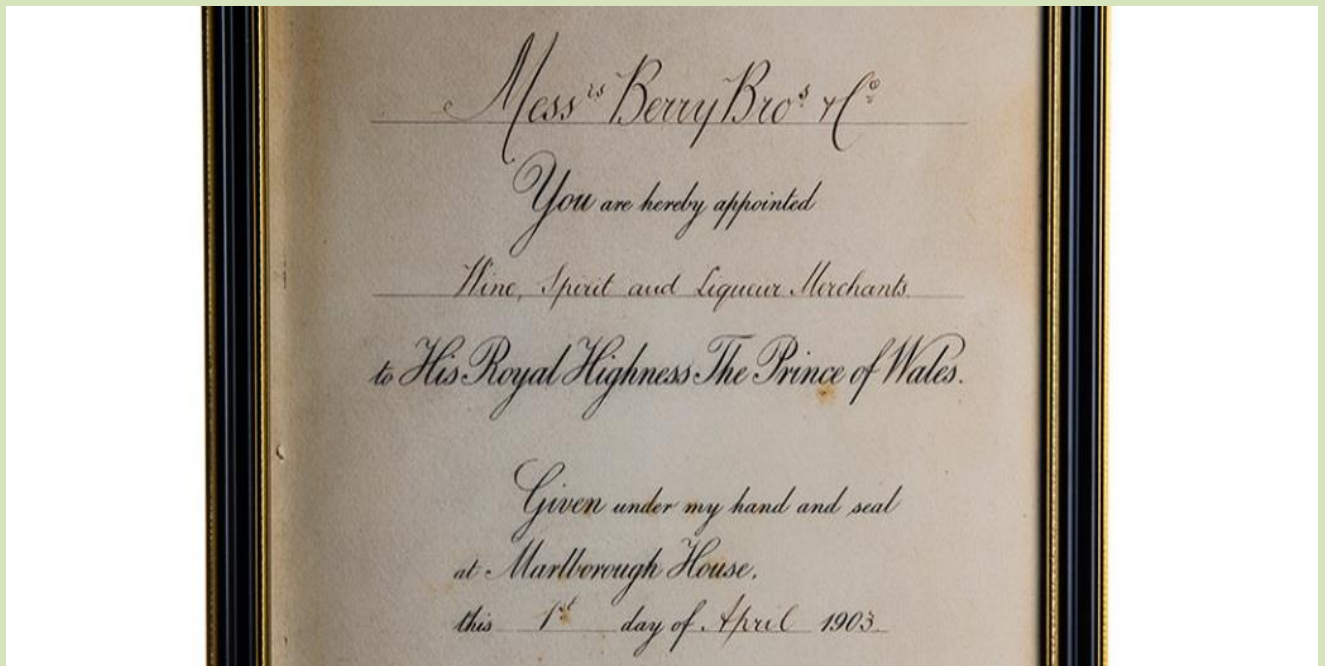 Messrs Berry Bros. & Co.
You are hereby appointed
Wine, Spirit and Liqueur Merchants
to His Royal Highness The Prince of Wales.
Given under my hand and seal
at Marlborough House,
this 1st day of April 1903.